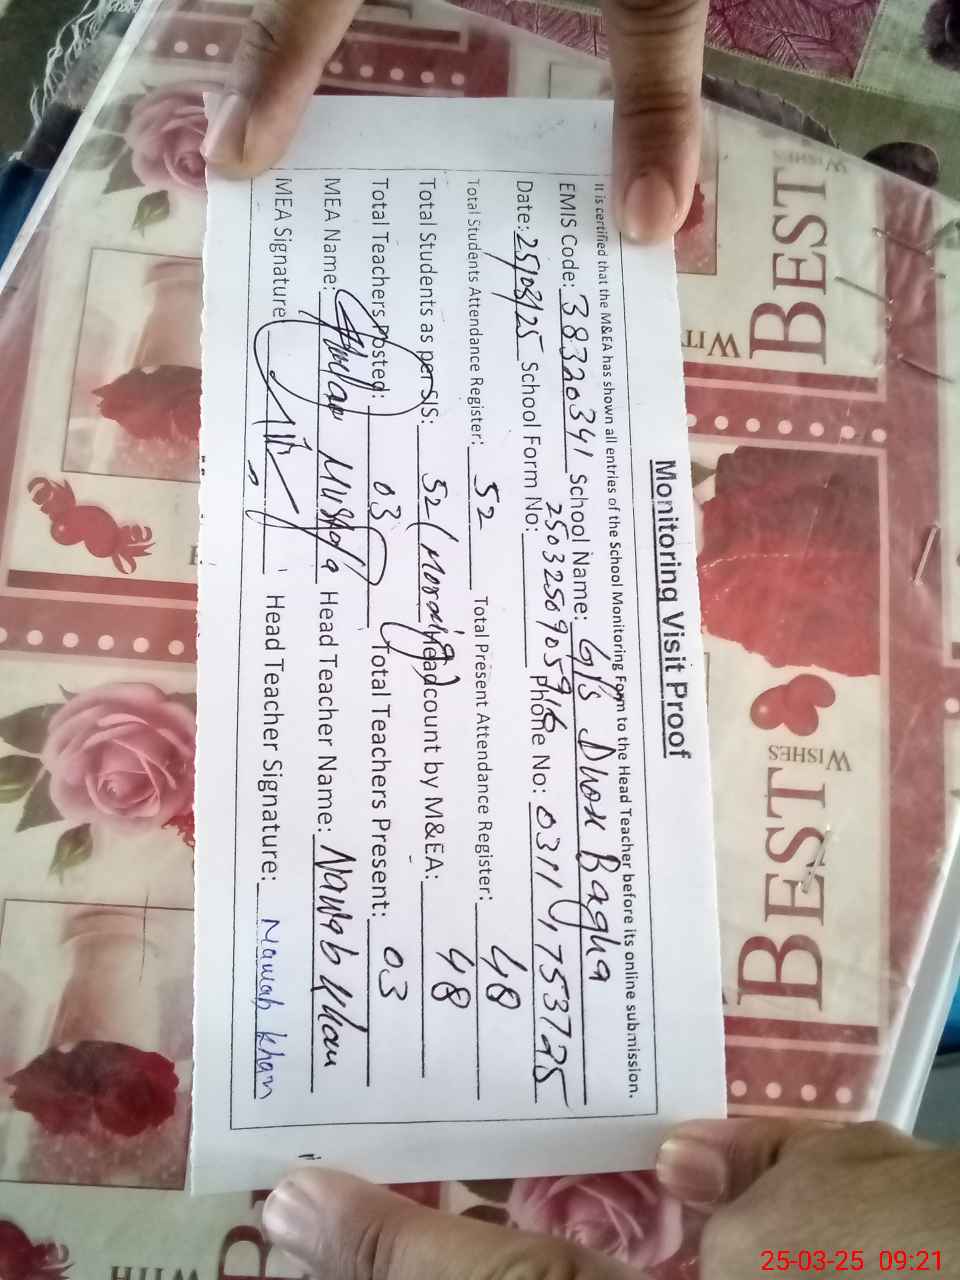 Monitoring Visit Proof
It is certified that the M&EA has shown all entries of the School Monitoring Form to the Head Teacher before its online submission.
EMIS Code: 38320341 School Name: GPS Dhok Bagha
Date: 25/03/25 School Form No: 2503250905916 Phone No: 0311 1753725
Total Students Attendance Register: 52 Total Present Attendance Register: 48
Total Students as per SIS: 52 (Morning) Headcount by M&EA: 48
Total Teachers Posted: 03 Total Teachers Present: 03
MEA Name: Ghulam Mustafa Head Teacher Name: Nawab Khan
MEA Signature: Head Teacher Signature: Nawab khan
WISHES
BEST
WITH
WISHES
BEST
WITH
25-03-25 09:21